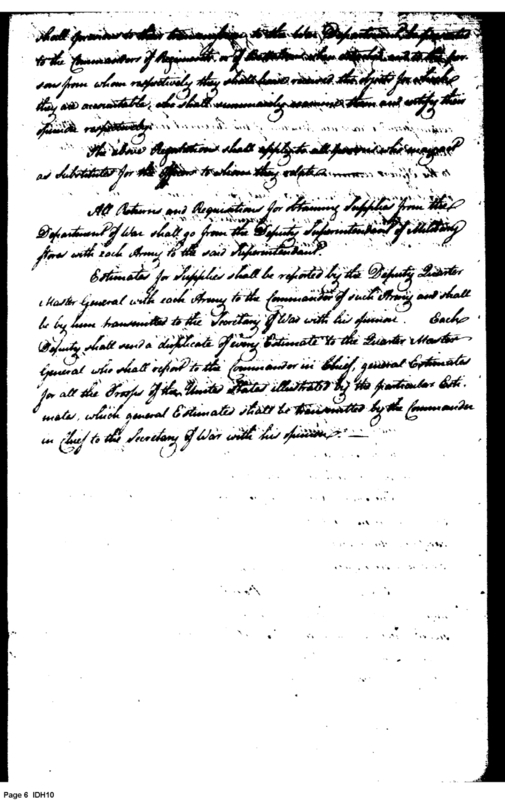 shall previous to their transmission to the War Department be presented
to the Commanders of Regiments or of Battalions when detached and to the per-
sons from whom respectively they shall have received the objects for which
they are accountable, who shall summarily examine them and certify their
opinion respectively.
The above Regulations shall apply to all persons who may act
as Substitutes for the Officers to whom they relate
All Returns and Requisitions for obtaining Supplies from the
Department of War shall go from the Deputy Superintendant of Military
stores with each Army to the said Superintendant.
Estimates for Supplies shall be reported by the Deputy Quarter
Master General with each Army to the Commander of such Army and shall
be by him transmitted to the Secretary of War with his opinion. Each
Deputy shall send a duplicate of every Estimate to the Quarter Master
General who shall report to the Commander in Chief, general Estimates
for all the Troops of the United States illustrated by the particular Esti-
mates, which general Estimates shall be transmitted by the Commander
in Chief to the Secretary of War with his opinion.
Page 6 IDH10